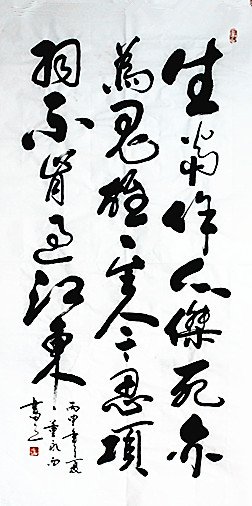 生當作人傑死亦
為鬼雄至今思項
羽不肯過江東
丙申年夏
書之